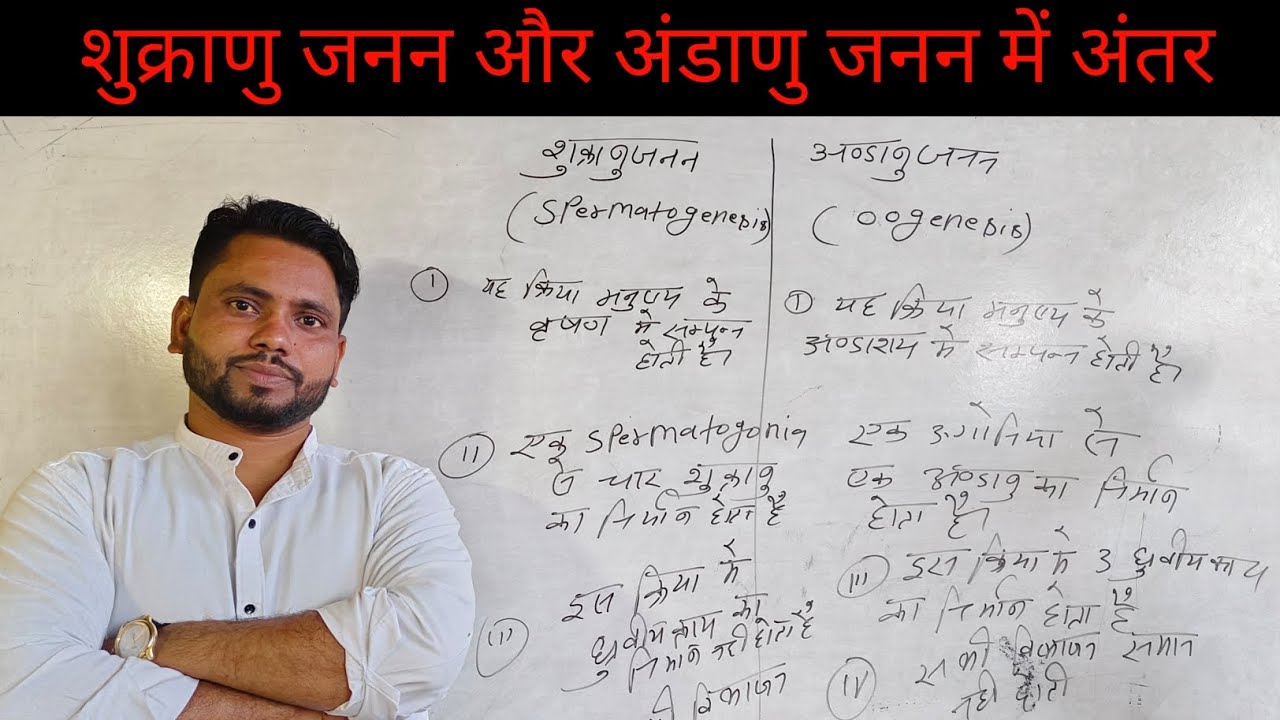 शुक्राणु जनन और अंडाणु जनन में अंतर
शुक्रानुजनन
(Spermatogenesis)
① यह क्रिया मनुष्य के
वृषण में सम्पन्न
होती है।
(ii) एक Spermatogonia
से चार शुक्रानु
का निर्मान होता है
(iii) इस क्रिया में
ध्रुवीय काय का
निर्मान नही होता है
विभाजन
अण्डानुजनन
(oogenesis)
① यह क्रिया मनुष्य के
अण्डाशय में सम्पन्न होती है।
एक उगोनिया से
एक अण्डानु का निर्मान
होता है।
(iii) इस क्रिया में 3 ध्रुवीयकाय
का निर्मान होता है
(iv) सभी विभाजन समान
नही होती